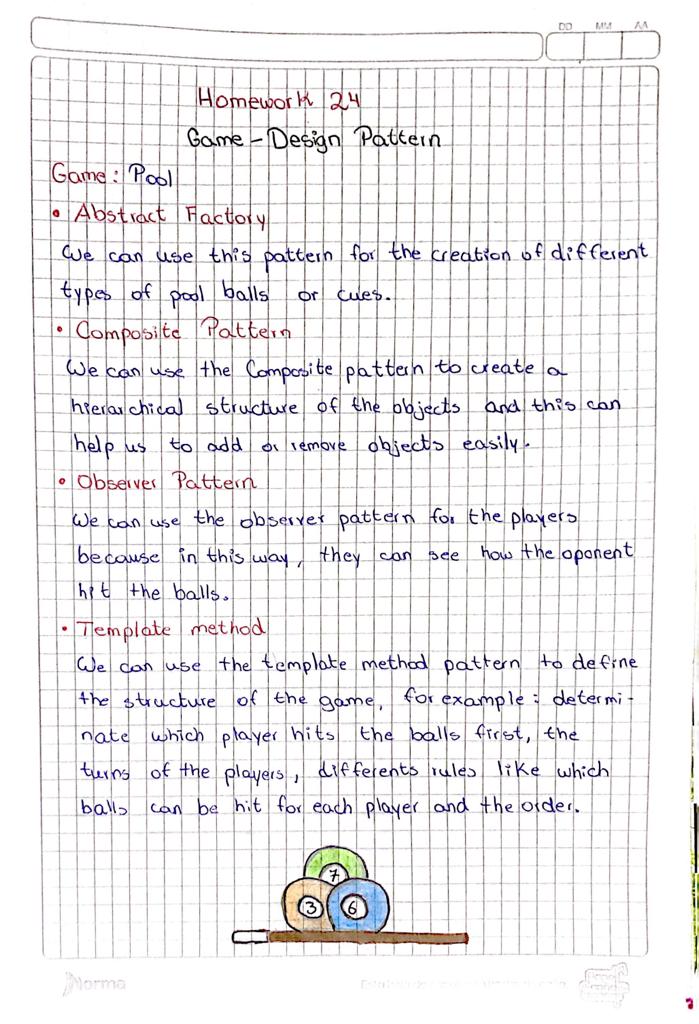 DD MM AA
Homework 24
Game - Design Pattern
Game: Pool
• Abstract Factory
We can use this pattern for the creation of different
types of pool balls or cues.
• Composite Pattern
We can use the Composite pattern to create a
hierarchical structure of the objects and this can
help us to add or remove objects easily.
• Observer Pattern
We can use the observer pattern for the players
because in this way, they can see how the oponent
hit the balls.
• Template method
We can use the template method pattern to define
the structure of the game, for example: determi-
nate which player hits the balls first, the
turns of the players, differents rules like which
balls can be hit for each player and the order.
7
3 6
Norma